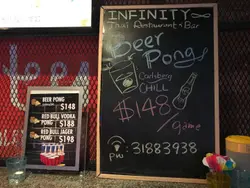 INFINITY
Thai Restaurant & Bar
Beer
Pong
Carlsberg
CHILL
$148
/game
PW: 31883938
BEER PONG
$148
RED BULL VODKA
PONG
$188
RED BULL JAGER
PONG
$198